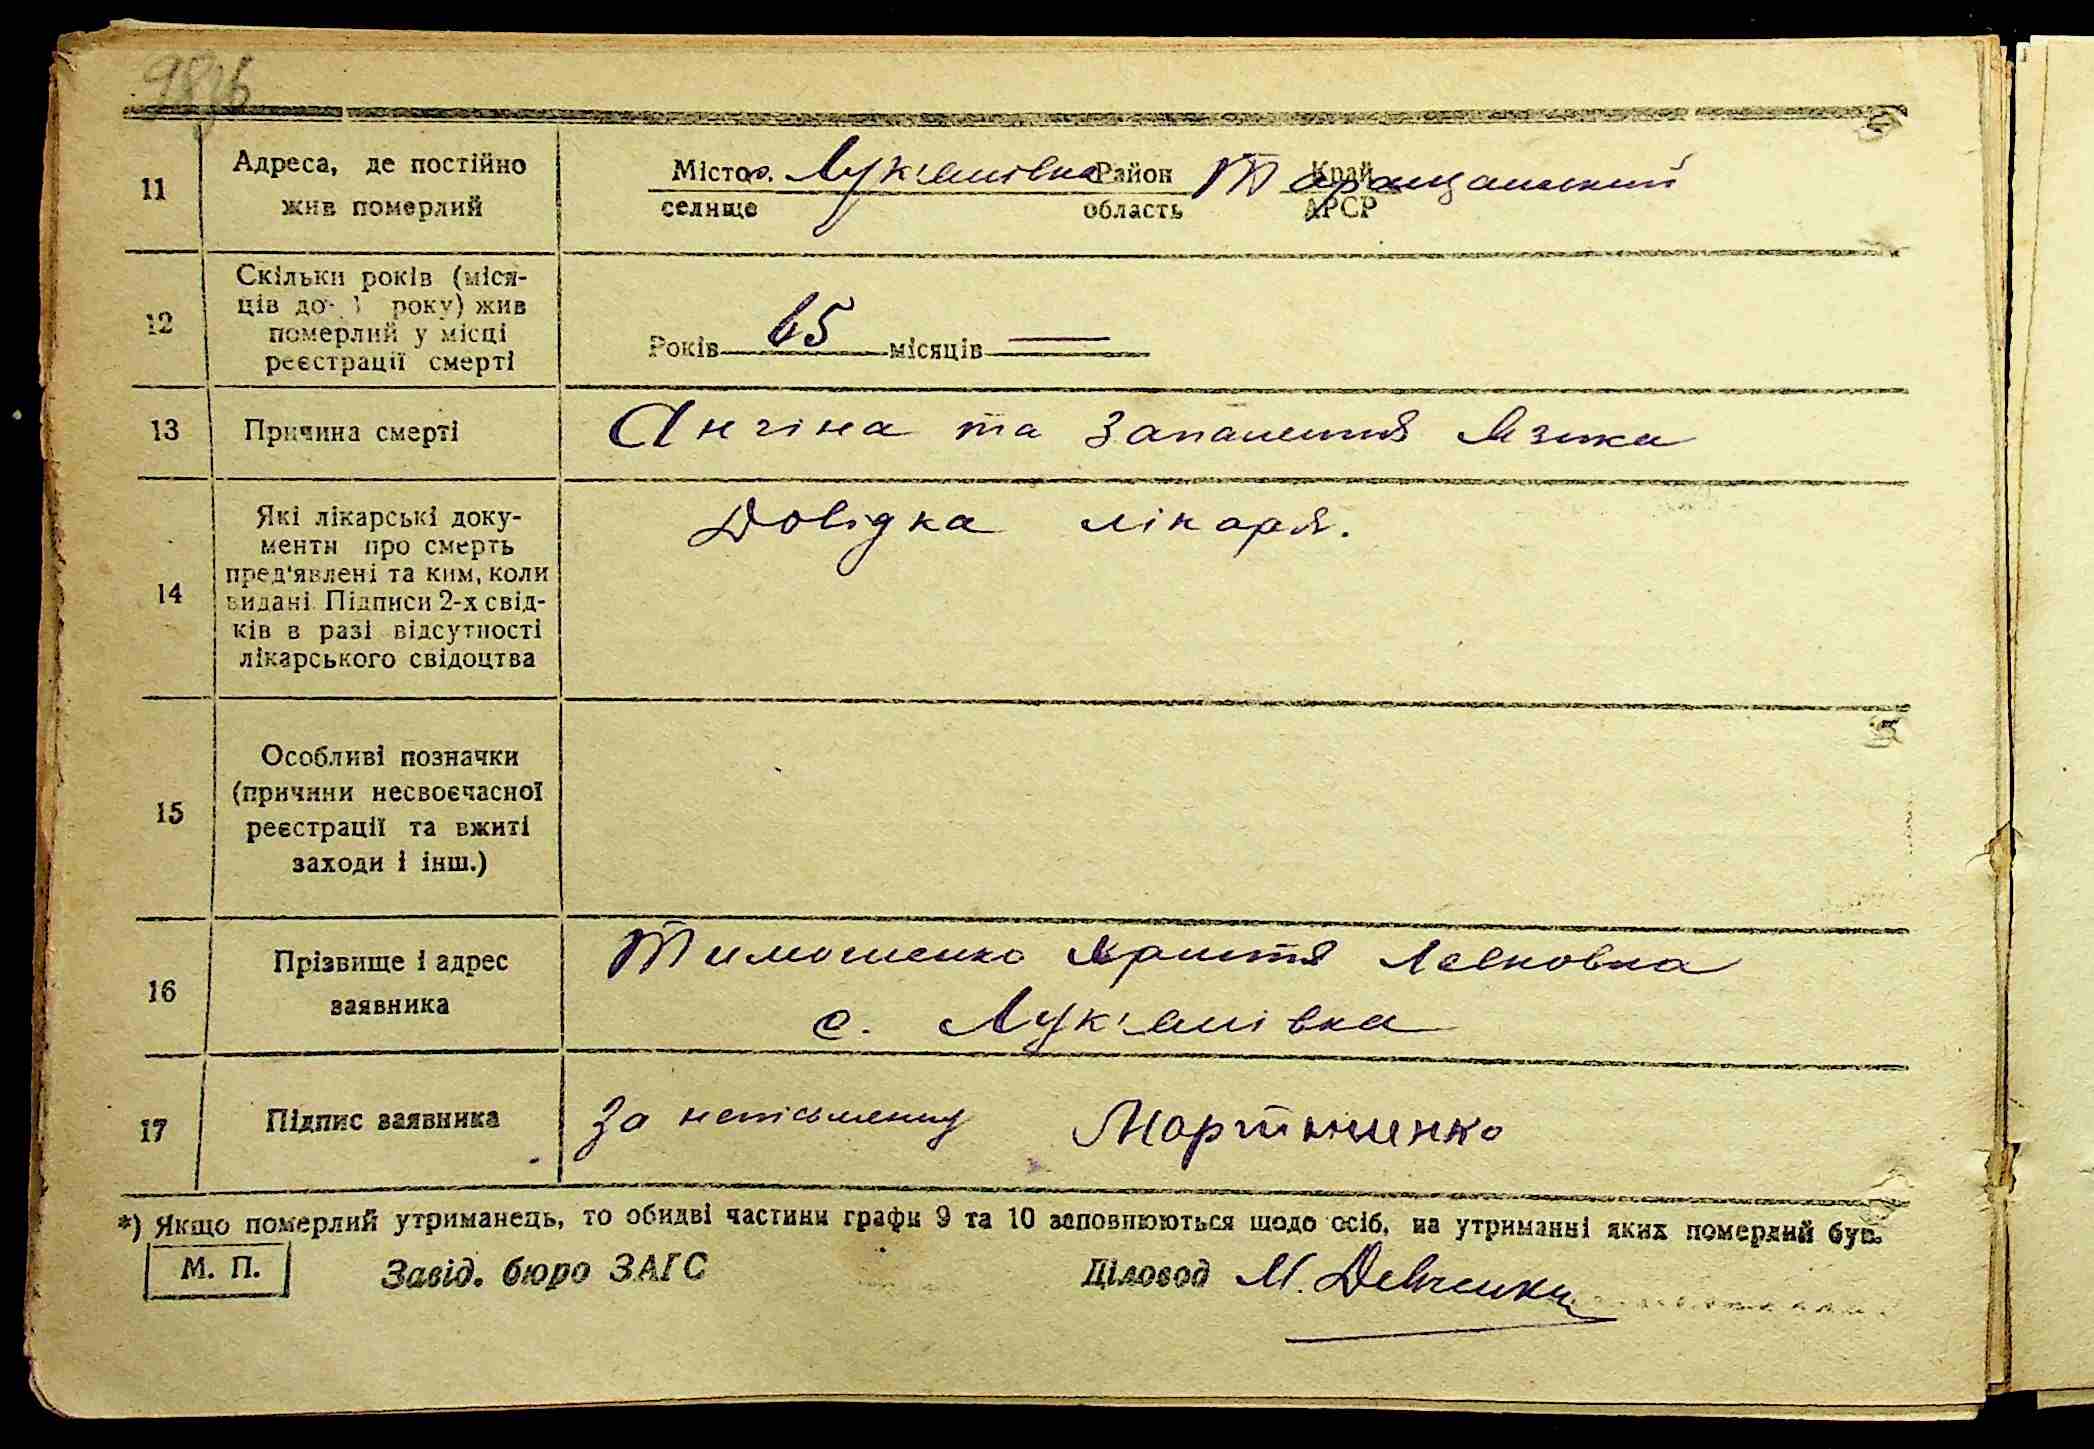 98
11 Адреса, де постійно
жив померлий
Місто с. Лук'янівка Район Таращанський Край
селище область АРСР
12 Скільки років (міся-
ців до 1 року) жив
померлий у місці
реєстрації смерті
Років 65 місяців —
13 Причина смерті Ангіна та запалення язика
14 Які лікарські доку-
менти про смерть
пред'явлені та ким, коли
видані. Підписи 2-х свід-
ків в разі відсутності
лікарського свідоцтва
Довідка лікаря.
15 Особливі позначки
(причини несвоєчасної
реєстрації та вжиті
заходи і інш.)
16 Прізвище і адрес
заявника
Тимошенко Христя
с. Лук'янівка
17 Підпис заявника За неписьмену Мартиненко
*) Якщо померлий утриманець, то обидві частини графи 9 та 10 заповнюються щодо осіб, на утриманні яких померлий був.
М. П. Завід. бюро ЗАГС Діловод М.